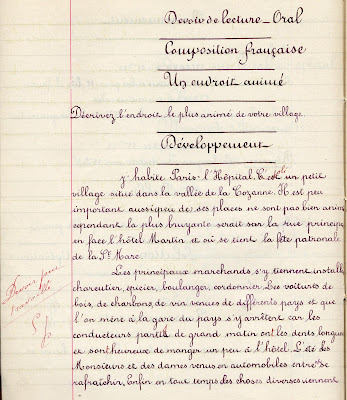 Devoir de lecture_Oral
Composition française
Un endroit animé
Décrivez l'endroit le plus animé de votre village.
Développement
J'habite Paris-l'Hôpital. C'est un petit
village situé dans la vallée de la Cozanne. Il est peu
important aussi peu de ses places ne sont pas bien anim
cependant la plus bruyante serait sur la rue princip
en face l'hôtel Martin et où se tient la fête patronale
de la St Marc
Les principaux marchands s'y tiennent install
charcutier, épicier, boulanger, cordonnier. Des voitures de
bois, de charbons, de vin venues de différents pays et que
l'on mène à la gare du pays s'y arrêtent car les
conducteurs partis de grand matin ont les dents longues
et sont heureux de manger un peu à l'hôtel. L'été des
Messieurs et des dames venus en automobiles entrent se
rafraîchir. Enfin en tout temps des choses diverses viennent
Devoir pour